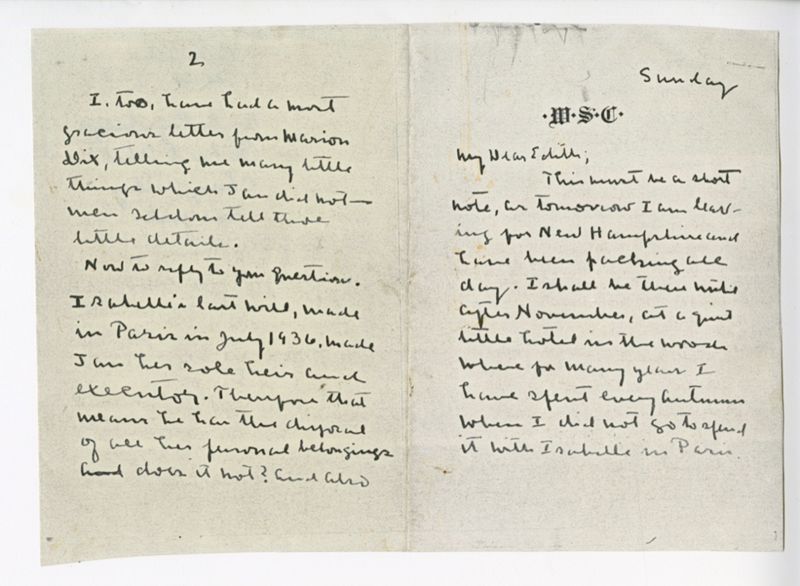 Sunday
·W·S·C·
My Dear Edith;
This must be a short
note, as tomorrow I am leav-
ing for New Hampshire and
have been packing all
day. I shall be there until
after November, at a quiet
little hotel in the woods
where for many years I
have spent every autumn
when I did not go to spend
it with Isabelle in Paris.
2
I, too, have had a most
gracious letter from Marion
Dix, telling me many little
things which Jan did not—
men seldom tell those
little details.
Now to reply to your question.
Isabelle's last will, made
in Paris in July 1936, made
Jan her sole heir and
executor. Therefore that
means he has the disposal
of all her personal belongings
and does it not? and also